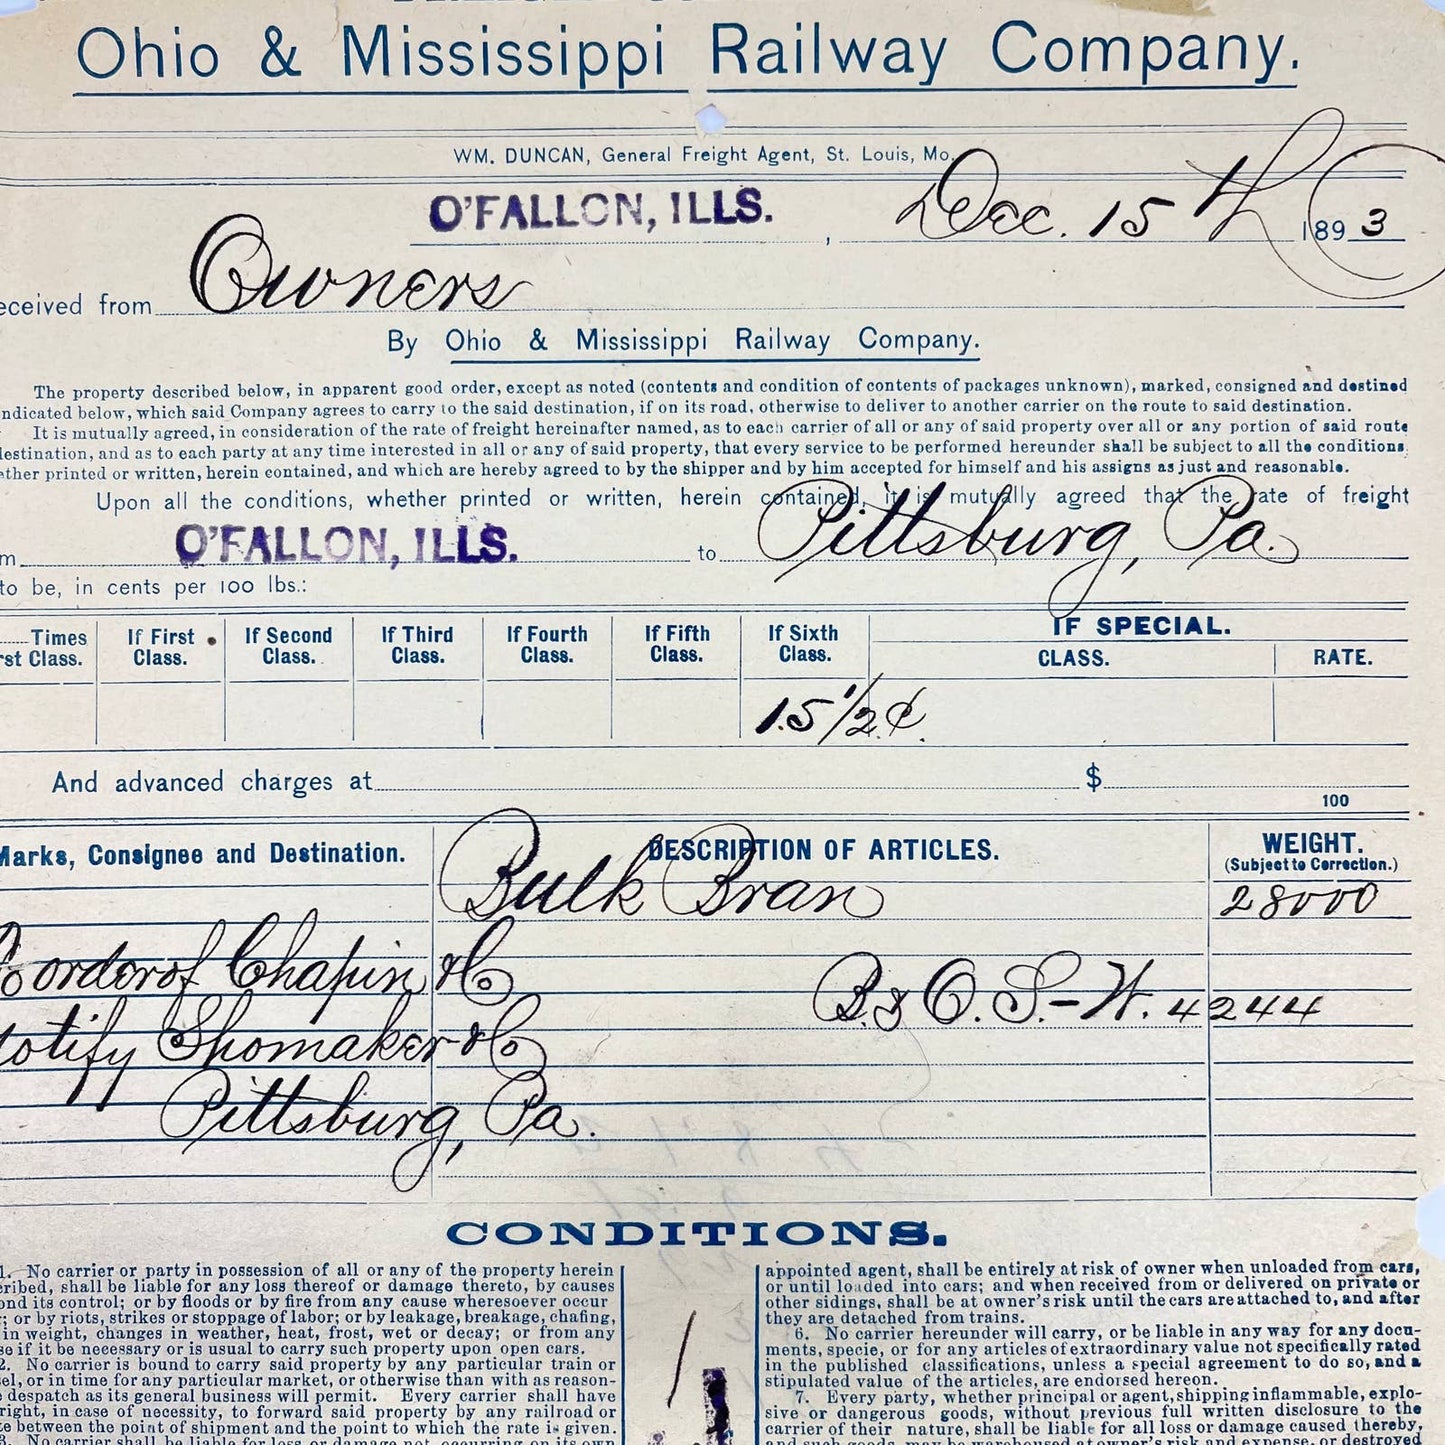 Ohio & Mississippi Railway Company.
WM. DUNCAN, General Freight Agent, St. Louis, Mo.
O'FALLON, ILLS. , Dec. 15th 1893
eceived from Owners
By Ohio & Mississippi Railway Company.
The property described below, in apparent good order, except as noted (contents and condition of contents of packages unknown), marked, consigned and destined
ndicated below, which said Company agrees to carry to the said destination, if on its road, otherwise to deliver to another carrier on the route to said destination.
It is mutually agreed, in consideration of the rate of freight hereinafter named, as to each carrier of all or any of said property over all or any portion of said route
destination, and as to each party at any time interested in all or any of said property, that every service to be performed hereunder shall be subject to all the conditions
ther printed or written, herein contained, and which are hereby agreed to by the shipper and by him accepted for himself and his assigns as just and reasonable.
Upon all the conditions, whether printed or written, herein contained, it is mutually agreed that the rate of freight
m O'FALLON, ILLS. to Pittsburg, Pa.
to be, in cents per 100 lbs.:
Times If First If Second If Third If Fourth If Fifth If Sixth IF SPECIAL.
rst Class. Class. Class. Class. Class. Class. Class. CLASS. RATE.
15 1/2 ¢
And advanced charges at $
100
Marks, Consignee and Destination. DESCRIPTION OF ARTICLES. WEIGHT.
(Subject to Correction.)
Bulk Bran 28000
orderof Chapin & Co
B. & O. S.-W. 4244
Notify Shomaker & Co
Pittsburg, Pa.
CONDITIONS.
1. No carrier or party in possession of all or any of the property herein
cribed, shall be liable for any loss thereof or damage thereto, by causes
ond its control; or by floods or by fire from any cause wheresoever occur
; or by riots, strikes or stoppage of labor; or by leakage, breakage, chafing,
in weight, changes in weather, heat, frost, wet or decay; or from any
se if it be necessary or is usual to carry such property upon open cars.
2. No carrier is bound to carry said property by any particular train or
sel, or in time for any particular market, or otherwise than with as reason-
despatch as its general business will permit. Every carrier shall have
right, in case of necessity, to forward said property by any railroad or
te between the point of shipment and the point to which the rate is given.
3. No carrier shall be liable for loss or damage not occurring on its own
appointed agent, shall be entirely at risk of owner when unloaded from cars,
or until loaded into cars; and when received from or delivered on private or
other sidings, shall be at owner's risk until the cars are attached to, and after
they are detached from trains.
6. No carrier hereunder will carry, or be liable in any way for any docu-
ments, specie, or for any articles of extraordinary value not specifically rated
in the published classifications, unless a special agreement to do so, and a
stipulated value of the articles, are endorsed hereon.
7. Every party, whether principal or agent, shipping inflammable, explo-
sive or dangerous goods, without previous full written disclosure to the
carrier of their nature, shall be liable for all loss or damage caused thereby,
and such goods may be warehoused at owner's risk and expense, or destroyed